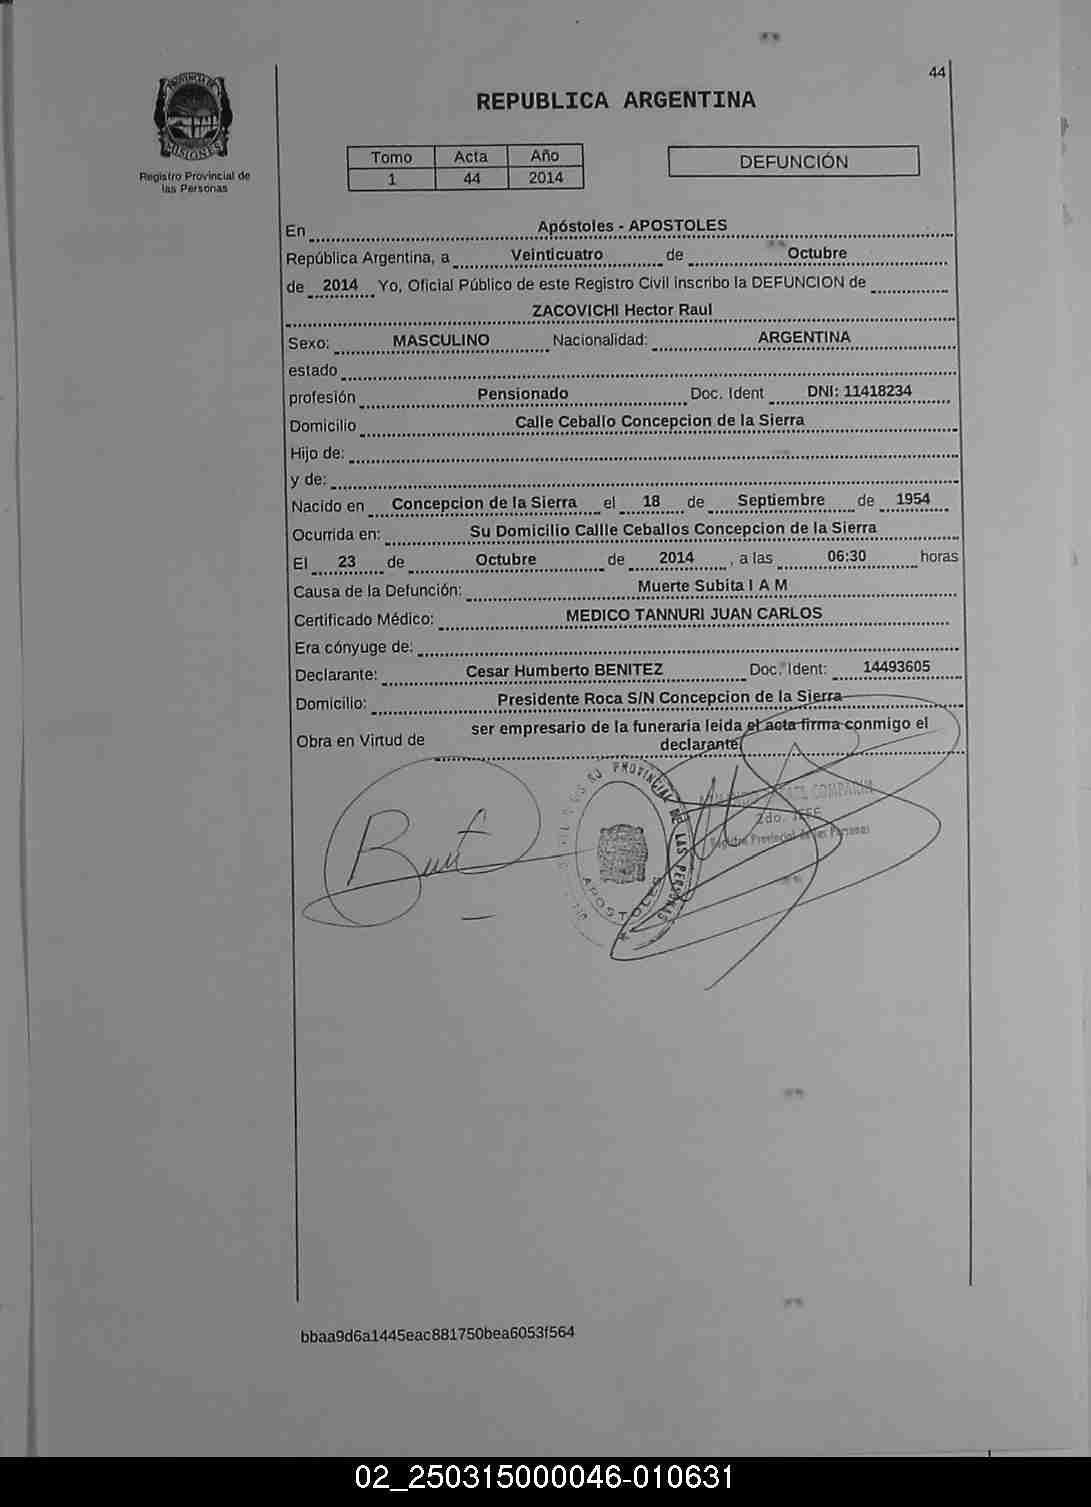 44
PROVINCIA DE
MISIONES
Registro Provincial de
las Personas
REPUBLICA ARGENTINA
Tomo Acta Año
1 44 2014
DEFUNCIÓN
En Apóstoles - APOSTOLES
República Argentina, a Veinticuatro de Octubre
de 2014 Yo, Oficial Público de este Registro Civil inscribo la DEFUNCION de
ZACOVICHI Hector Raul
Sexo: MASCULINO Nacionalidad: ARGENTINA
estado
profesión Pensionado Doc. Ident DNI: 11418234
Domicilio Calle Ceballo Concepcion de la Sierra
Hijo de:
y de:
Nacido en Concepcion de la Sierra el 18 de Septiembre de 1954
Ocurrida en: Su Domicilio Callle Ceballos Concepcion de la Sierra
El 23 de Octubre de 2014 , a las 06:30 horas
Causa de la Defunción: Muerte Subita I A M
Certificado Médico: MEDICO TANNURI JUAN CARLOS
Era cónyuge de:
Declarante: Cesar Humberto BENITEZ Doc. Ident: 14493605
Domicilio: Presidente Roca S/N Concepcion de la Sierra
Obra en Virtud de ser empresario de la funeraria leida el acta firma conmigo el
declarante
PROVINCIAL DE LAS PERSONAS
APOSTOLES
2do. JEFE
Registro Provincial de las Personas
bbaa9d6a1445eac881750bea6053f564
02_250315000046-010631